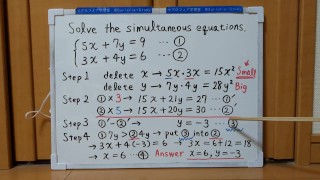 Solve the simultaneous equations.
{ 5x + 7y = 9 … ①
3x + 4y = 6 … ②
Step 1 delete x → 5x・3x = 15x² Small
delete y → 7y・4y = 28y² Big
Step 2 ①×3 → 15x + 21y = 27 … ①'
②×5 → 15x + 20y = 30 … ②'
Step 3 ①' - ②' → y = -3 … ③
Step 4 ①7y > ②4y → put ③ into ②
→ 3x + 4(-3) = 6 3x = 6 + 12 = 18
→ x = 6 … ④ Answer x = 6, y = -3